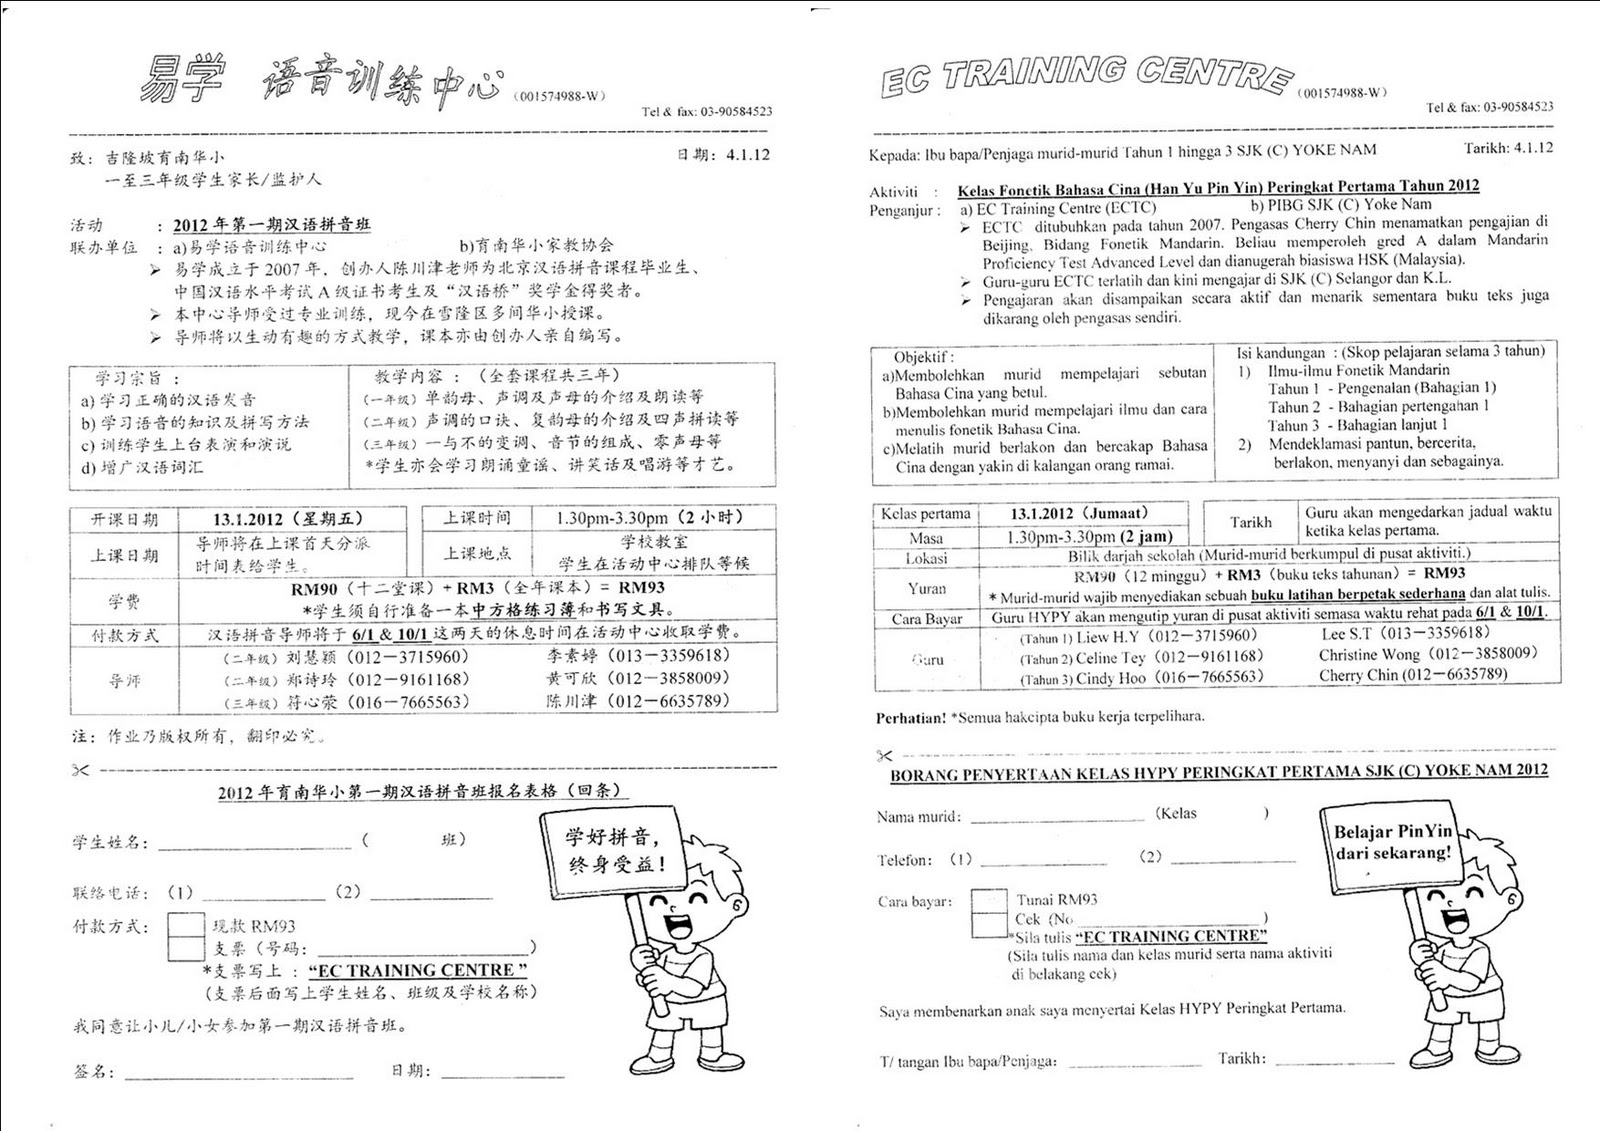 易学 语音训练中心（001574988-W）
Tel & fax: 03-90584523
致：吉隆坡育南华小 日期：4.1.12
一至三年级学生家长/监护人
活动 ：2012年第一期汉语拼音班
联办单位 ：a)易学语音训练中心 b)育南华小家教协会
➢ 易学成立于2007年，创办人陈川津老师为北京汉语拼音课程毕业生、
中国汉语水平考试A级证书考生及“汉语桥”奖学金得奖者。
➢ 本中心导师受过专业训练，现今在雪隆区多间华小授课。
➢ 导师将以生动有趣的方式教学，课本亦由创办人亲自编写。
学习宗旨：
a) 学习正确的汉语发音
b) 学习语音的知识及拼写方法
c) 训练学生上台表演和演说
d) 增广汉语词汇
教学内容 ：（全套课程共三年）
（一年级）单韵母、声调及声母的介绍及朗读等
（二年级）声调的口诀、复韵母的介绍及四声拼读等
（三年级）一与不的变调、音节的组成、零声母等
*学生亦会学习朗诵童谣、讲笑话及唱游等才艺。
开课日期 13.1.2012（星期五） 上课时间 1.30pm-3.30pm（2 小时）
上课日期 导师将在上课首天分派
时间表给学生。
上课地点 学校教室
学生在活动中心排队等候
学费 RM90（十二堂课）+ RM3（全年课本）= RM93
*学生须自行准备一本中方格练习簿和书写文具。
付款方式 汉语拼音导师将于 6/1 & 10/1 这两天的休息时间在活动中心收取学费。
导师 （二年级）刘慧颖（012－3715960） 李素婷（013－3359618）
（二年级）郑诗玲（012－9161168） 黄可欣（012－3858009）
（三年级）符心荣（016－7665563） 陈川津（012－6635789）
注：作业乃版权所有，翻印必究。
2012年育南华小第一期汉语拼音班报名表格（回条）
学生姓名：（ 班）
联络电话：（1） （2）
付款方式： 现款 RM93
支票（号码： ）
*支票写上：“EC TRAINING CENTRE ”
（支票后面写上学生姓名、班级及学校名称）
我同意让小儿/小女参加第一期汉语拼音班。
签名： 日期：
学好拼音，
终身受益！
EC TRAINING CENTRE（001574988-W）
Tel & fax: 03-90584523
Kepada: Ibu bapa/Penjaga murid-murid Tahun 1 hingga 3 SJK (C) YOKE NAM Tarikh: 4.1.12
Aktiviti : Kelas Fonetik Bahasa Cina (Han Yu Pin Yin) Peringkat Pertama Tahun 2012
Penganjur : a) EC Training Centre (ECTC) b) PIBG SJK (C) Yoke Nam
➢ ECTC ditubuhkan pada tahun 2007. Pengasas Cherry Chin menamatkan pengajian di
Beijing, Bidang Fonetik Mandarin. Beliau memperoleh gred A dalam Mandarin
Proficiency Test Advanced Level dan dianugerah biasiswa HSK (Malaysia).
➢ Guru-guru ECTC terlatih dan kini mengajar di SJK (C) Selangor dan K.L.
➢ Pengajaran akan disampaikan secara aktif dan menarik sementara buku teks juga
dikarang oleh pengasas sendiri.
Objektif :
a)Membolehkan murid mempelajari sebutan
Bahasa Cina yang betul.
b)Membolehkan murid mempelajari ilmu dan cara
menulis fonetik Bahasa Cina.
c)Melatih murid berlakon dan bercakap Bahasa
Cina dengan yakin di kalangan orang ramai.
Isi kandungan : (Skop pelajaran selama 3 tahun)
1) Ilmu-ilmu Fonetik Mandarin
Tahun 1 - Pengenalan (Bahagian 1)
Tahun 2 - Bahagian pertengahan 1
Tahun 3 - Bahagian lanjut 1
2) Mendeklamasi pantun, bercerita,
berlakon, menyanyi dan sebagainya.
Kelas pertama 13.1.2012（Jumaat）
Masa 1.30pm-3.30pm (2 jam)
Tarikh Guru akan mengedarkan jadual waktu
ketika kelas pertama.
Lokasi Bilik darjah sekolah (Murid-murid berkumpul di pusat aktiviti.)
Yuran RM90（12 minggu）+ RM3（buku teks tahunan）= RM93
* Murid-murid wajib menyediakan sebuah buku latihan berpetak sederhana dan alat tulis.
Cara Bayar Guru HYPY akan mengutip yuran di pusat aktiviti semasa waktu rehat pada 6/1 & 10/1.
Guru (Tahun 1) Liew H.Y（012－3715960） Lee S.T（013－3359618）
(Tahun 2) Celine Tey（012－9161168） Christine Wong（012－3858009）
(Tahun 3) Cindy Hoo（016－7665563） Cherry Chin (012－6635789)
Perhatian! *Semua hakcipta buku kerja terpelihara.
BORANG PENYERTAAN KELAS HYPY PERINGKAT PERTAMA SJK (C) YOKE NAM 2012
Nama murid: （Kelas ）
Telefon:（1） （2）
Cara bayar: Tunai RM93
Cek（No ）
*Sila tulis “EC TRAINING CENTRE”
(Sila tulis nama dan kelas murid serta nama aktiviti
di belakang cek)
Saya membenarkan anak saya menyertai Kelas HYPY Peringkat Pertama.
T/ tangan Ibu bapa/Penjaga: Tarikh:
Belajar PinYin
dari sekarang!